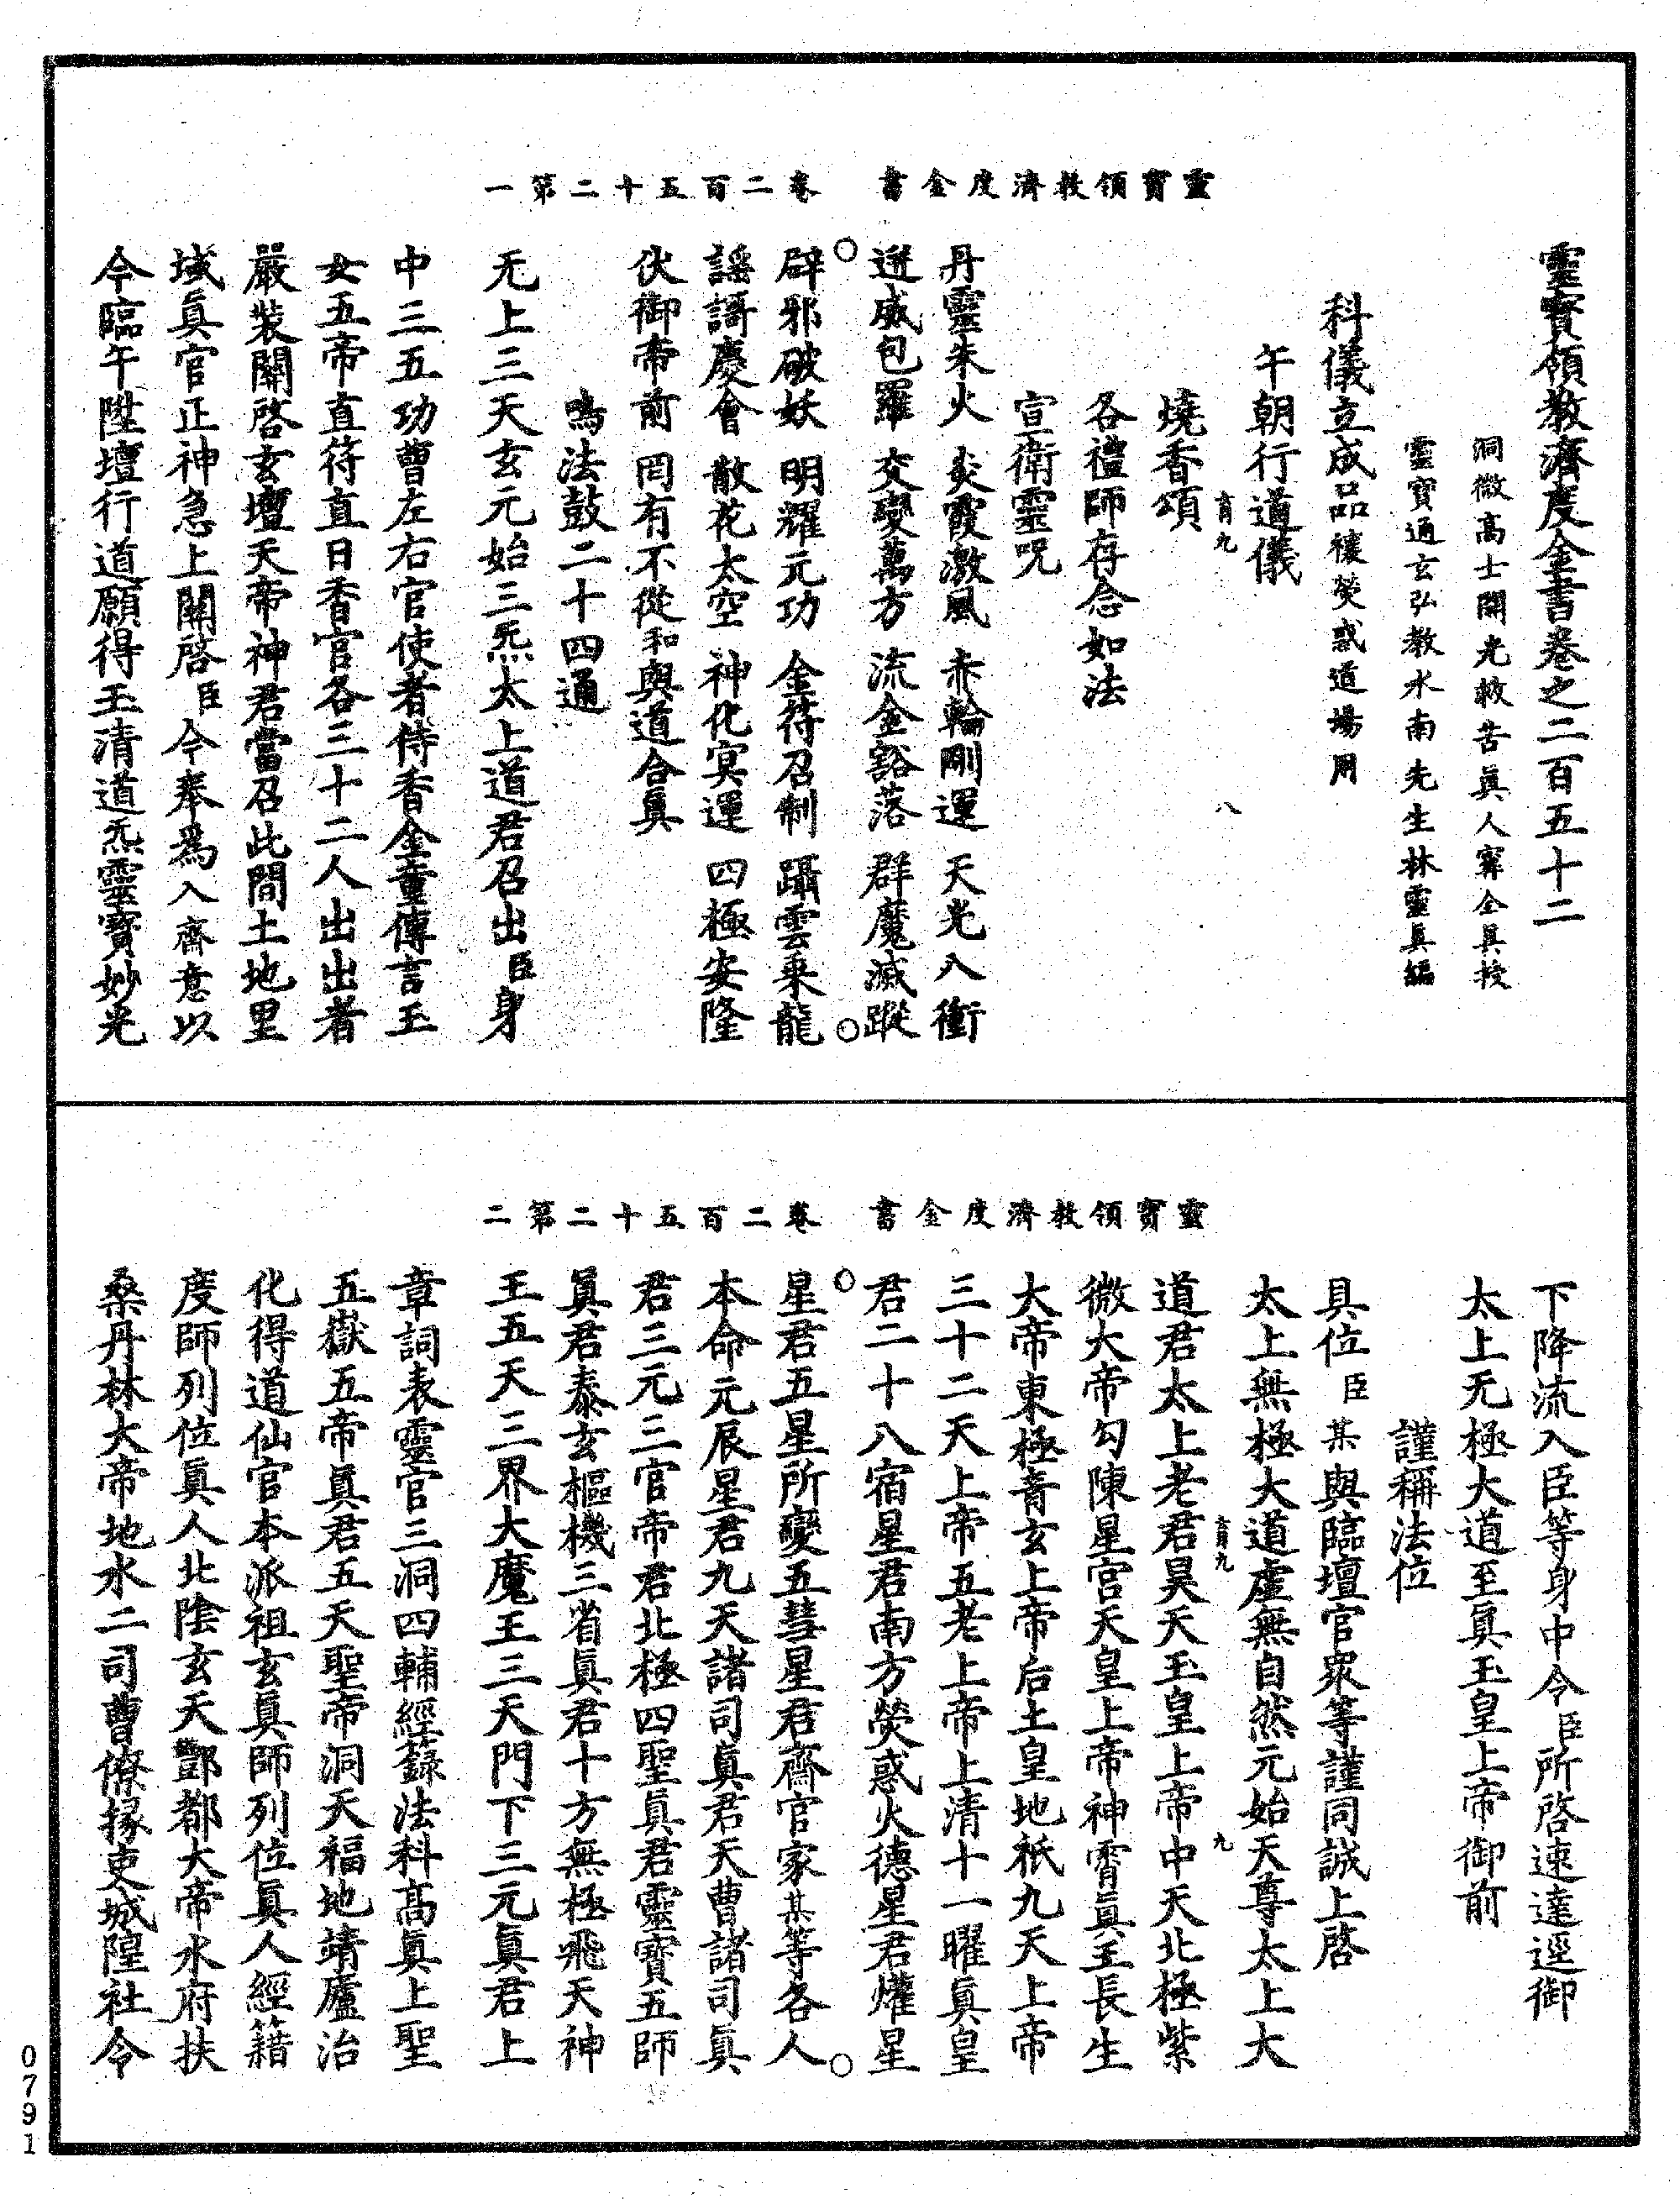 靈寶領教濟度金書　卷二百五十二第一
靈寶領教濟度金書卷之二百五十二
洞微高士開光救苦眞人寗全眞授
靈寶通玄弘教水南先生林靈眞編
科儀立成品禳熒惑道場用
午朝行道儀
育九
八
燒香頌
各禮師存念如法
宣衛靈呪
丹靈朱火　炎霞激風　赤輪剛運　天光八衝
迸威包羅　交變萬方　流金豁落　群魔滅蹤
辟邪破妖　明耀元功　金符召制　躡雲乗龍
謡謌慶會　散花太空　神化㝠運　四極安隆
伏御帝前　罔有不從和與道合眞
鳴法鼓二十四通
无上三天玄元始三炁太上道君召出臣身
中三五功曹左右官使者侍香金童傳言玉
女五帝直符直日香官各三十二人出出者
嚴裝關啓玄壇天帝神君當召此間土地里
域眞官正神急上關啓臣今奉爲入齋意以
今臨午陞壇行道願得王清道炁靈寶妙光
靈寶領教濟度金書　卷二百五十二第二
下降流入臣等身中令臣所啓速達逕御
太上无極大道至眞玉皇上帝御前
謹稱法位
具位臣某與臨壇官衆等謹同誠上啓
太上無極大道虚無自然元始天尊太上大
育九
九
道君太上老君昊天玉皇上帝中天北極紫
微大帝勾陳星宮天皇上帝神霄眞王長生
大帝東極青玄上帝后土皇地祇九天上帝
三十二天上帝五老上帝上清十一曜眞皇
君二十八宿星君南方熒惑火德星君爟星
星君五星所變五彗星君齋官家某等各人
本命元辰星君九天諸司眞君天曹諸司眞
君三元三官帝君北極四聖眞君靈寶五師
眞君泰玄樞機三省眞君十方無極飛天神
王五天三界大魔王三天門下三元眞君上
章詞表靈官三洞四輔經籙法科高眞上聖
五嶽五帝眞君五天聖帝洞天福地靖廬治
化得道仙官本派祖玄眞師列位眞人經籍
度師列位眞人北陰玄天酆都大帝水府扶
桑丹林大帝地水二司曹僚掾吏城隍社令
0791